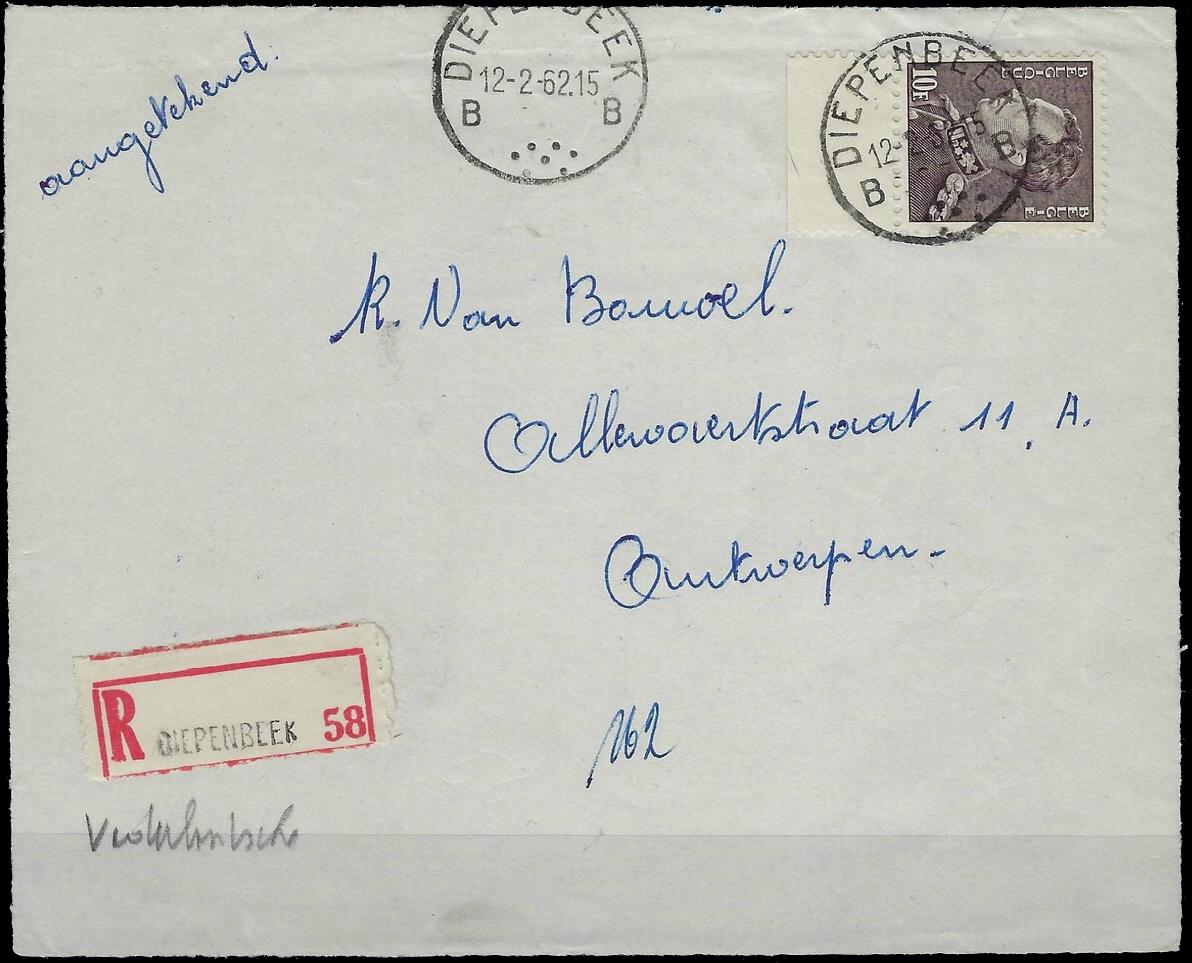 aangetekend.
DIEPENBEEK
12-2-62.15
B B
DIEPENBEEK
12-
B B
BELGIQUE
10F
BELGIE
K. Van Bouwel.
Allewaertstraat 11, A.
Antwerpen.
R DIEPENBEEK 58
162